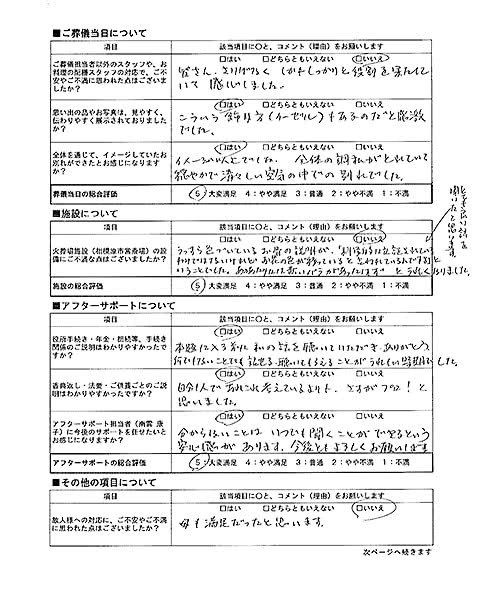 ■ご葬儀当日について
項目 該当項目に○と、コメント（理由）をお願いします
ご葬儀担当者以外のスタッフや、お料理の配膳スタッフの対応で、ご不安やご不満に思われた点はございましたか？
□はい □どちらともいえない □いいえ
皆さん、さりげなく しかもしっかりと役割を果たしていて 感心しました。
思い出の品やお写真は、見やすく、伝わりやすく展示されておりましたか？
□はい □どちらともいえない □いいえ
こういう飾り方(イーゼル)もあるのだと感激でした。
全体を通じて、イメージしていたお別れができたとお感じになりますか？
□はい □どちらともいえない □いいえ
イメージ以上でした。全体の調和がとれていて
穏やかで清々しい空気の中での別れでした。
葬儀当日の総合評価 5：大変満足 4：やや満足 3：普通 2：やや不満 1：不満
■施設について
項目 該当項目に○と、コメント（理由）をお願いします
火葬場施設（相模原市営斎場）の設備にご不満な点はございましたか？
□はい □どちらともいえない □いいえ
うっすら色づいているお骨の説明が、
ということでした。 とうれしくなりました。
施設の総合評価 5：大変満足 4：やや満足 3：普通 2：やや不満 1：不満
■アフターサポートについて
項目 該当項目に○と、コメント（理由）をお願いします
役所手続き・年金・相続等、手続き関係のご説明はわかりやすかったですか？
□はい □どちらともいえない □いいえ
本題に入る前に 私の話を聴いていただき、ありがとう
うれしい時期でした。
香典返し・法要・ご供養ごとのご説明はわかりやすかったですか？
□はい □どちらともいえない □いいえ
自分1人であれこれ考えているよりも、さすがプロ！と
思いました。
アフターサポート担当者（南雲 康子）に今後のサポートを任せたいとお感じになりますか？
□はい □どちらともいえない □いいえ
分からないことは いつでも聞くことができるという
安心感があります。今後ともよろしくお願いします
アフターサポートの総合評価 5：大変満足 4：やや満足 3：普通 2：やや不満 1：不満
■その他の項目について
項目 該当項目に○と、コメント（理由）をお願いします
故人様への対応に、ご不安やご不満に思われた点はございましたか？
□はい □どちらともいえない □いいえ
母も満足だったと思います。
次ページへ続きます